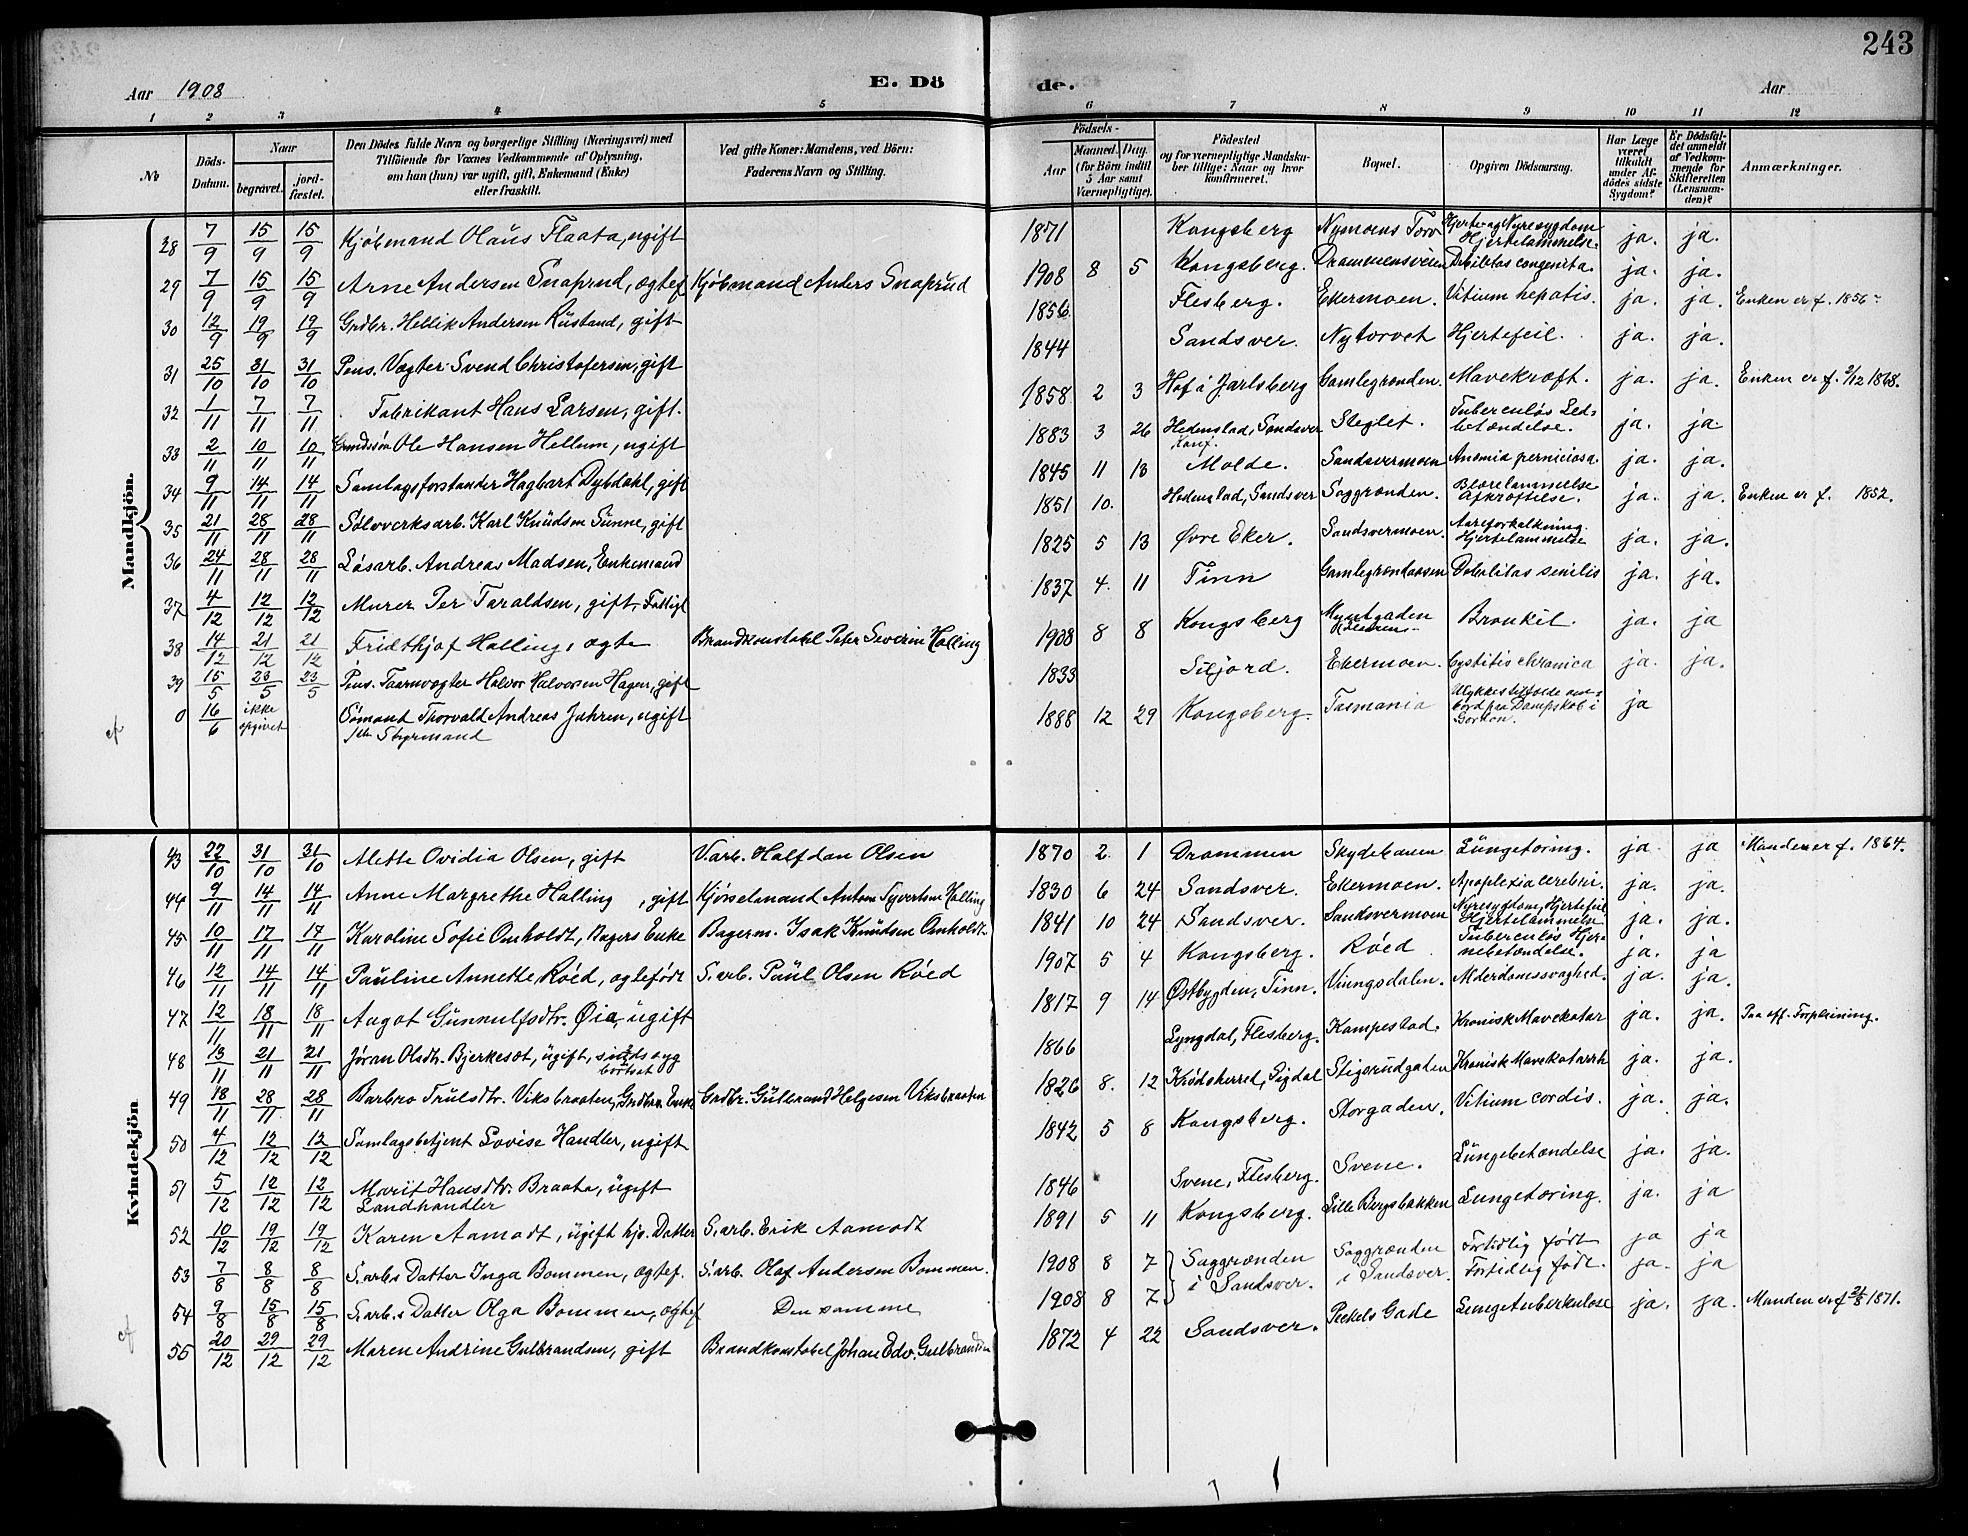 243
Aar 1908 E. Dö de. Aar
1 2 3 4 5 6 7 8 9 10 11 12
No
Döds-Datum.
Naar begravet. jordfæstet.
Den Dödes fulde Navn og borgerlige Stilling (Næringsvei) med Tilföiende for Voxnes Vedkommende af Oplysning, om han (hun) var ugift, gift, Enkemand (Enke) eller fraskilt.
Ved gifte Koner: Mandens, ved Börn: Faderens Navn og Stilling.
Födsels-
Aar Maaned. Dag. (for Börn indtil 5 Aar samt Værnepligtige).
Födested og for værnepligtige Mandskaber tillige: Naar og hvor konfirmeret.
Bopæl.
Opgiven Dödsaarsag.
Har Læge været tilkaldt under Afdödes sidste Sygdom?
Er Dödsfaldet anmeldt af Vedkommende for Skifteretten (Lensmanden)?
Anmærkninger.
Mandkjön.
28 7/9 15/9 15/9 Kjøbmand Olaus Flaata, ugift 1871 Kongsberg Nymoens Torv Hjerte- og Nyresygdom Hjertelammelse. ja. ja.
29 7/9 15/9 15/9 Arne Andersen Snaprud, ægtef Kjøbmand Anders Snaprud 1908 8 5 Kongsberg. Drammensveien Debilitas congenita. ja. ja.
30 12/9 19/9 19/9 Grdbr. Hellik Andersen Rustand, gift 1856 Flesberg. Ekermoen. Vitium hepatis. ja. ja. Enken er f. 1856
31 25/10 31/10 31/10 Pens. Vægter Svend Christofersen, gift 1844 Sandsver. Nytorvet Hjertefeil. ja. ja.
32 1/11 7/11 7/11 Fabrikant Hans Larsen, gift. 1858 2 3 Hof i Jarlsberg Gamlegrønden. Mavekræft. ja. ja. Enken er f. 9/12 1868.
33 2/11 10/11 10/11 Ole Hansen Hellum, ugift 1883 3 26 Hedenstad, Sandsver Konf. Steglet. Tuberculøs Ledbetændelse. ja. ja.
34 9/11 14/11 14/11 Samlagsforstander Hagbart Dybdahl, gift 1845 11 13 Molde. Sandsvermoen Anemia perniciosa. ja. ja.
35 21/11 28/11 28/11 Sølvverksarb. Karl Knudsen Sünne, gift 1851 10. Hedenstad, Sandsver Saggrænden. Blærelammelse Afkræftelse. ja. ja. Enken er f. 1852.
36 24/11 28/11 28/11 Løsarb. Andreas Madsen, Enkemand 1825 5 13 Øvre Eker. Sandsvermoen. Aareforkalkning. Hjertelammelse ja. ja.
37 4/12 12/12 12/12 Murer Per Taraldsen, gift, Fattigl 1837 4. 11 Tinn Gamlegrændaasen Debilitas senilis ja. ja.
38 14/12 21/12 21/12 Fridthjof Halling, ægte Brandkonstabel Peter Severin Halling 1908 8 8 Kongsberg Myntgaden Bronkit. ja. ja
39 15/5 23/5 23/5 Pens. Taarnvægter Halvor Halvorsen Hagen, gift 1833 Siljord. Ekermoen. Cystitis chronica ja. ja.
0 16/6 ikke opgivet Sømand Thorvald Andreas Jahren, ugift Styrmand 1888 12 29 Kongsberg. Tasmania Ulykkestilfælde ombord paa Dampskib i Gordon. ja
Kvindekjön
43 22/10 31/10 31/10 Alette Ovidia Olsen, gift V.arb. Halfdan Olsen 1870 2 1 Drammen Skydebanen Lungetæring. ja ja Manden er f. 1864.
44 9/11 14/11 14/11 Anne Margrethe Halling, gift Kjørselmand Anton Syvertsen Halling 1830 6 24 Sandsver. Ekermoen. Apoplexia cerebri. ja. ja.
45 10/11 17/11 17/11 Karoline Sofie Omholdt, Bagers Enke Bagerm. Isak Knudsen Omholdt 1841 10 24 Sandsver. Sandsvermoen Nyresygdom, Hjertefeil Hjertelammelse ja. ja.
46 12/11 14/11 14/11 Pauline Annette Røed, ægtefødt S.arb. Paul Olsen Røed 1907 5 4 Kongsberg. Røed Tuberculøs Hjernebetændelse. ja. ja
47 12/11 18/11 18/11 Aagot Gunnulfsdtr. Øia, ugift 1817 9 14 Østbygden, Tinn. Vinngsdalen. Alderdomssvaghed. ja. ja.
48 13/11 21/11 21/11 Jøran Olsdtr. Bjerkesæt, ugift, sindssyg bortsat 1866 Lyngdal, Flesberg. Kampestad. Kronisk Mavekatar ja. ja. Paa off. Forpleining.
49 18/11 28/11 28/11 Barbro Trulsdtr. Viksbraaten, Grdbr. Enke Grdbr. Gulbrand Helgesen Viksbraaten 1826 8. 12 Krødsherred, Sigdal Stigerudgaden Kronisk Mavekatarrh ja. ja.
50 4/12 12/12 12/12 Samlagsbetjent Lovise Handler, ugift 1842 5 8 Kongsberg. Storgaden. Vitium cordis. ja. ja.
51 5/12 12/12 12/12 Marit Hansdtr. Braata, ugift Landhandler 1846 Svene, Flesberg. Svene. Lungebetændelse ja. ja.
52 10/12 19/12 19/12 Karen Aamodt, ugift hjv. Datter S.arb. Erik Aamodt 1891 5 11 Kongsberg. Lille Bergsbakken Lungetæring. ja. ja
53 7/8 8/8 8/8 S.arbs Datter Inga Bommen, ægtef. S.arb. Olaf Andersen Bommen. 1908 8 7 Saggrænden i Sandsver. Saggrænden i Sandsver. Fortidlig født ja ja
54 9/8 15/8 15/8 S.arb.s Datter Olga Bommen, ægtef Den samme 1908 8 7 Fortidlig født. ja. ja
55 20/12 29/12 29/12 Maren Andrine Gulbrandsen, gift Brandkonstabel Johan Edv. Gulbrandsen 1872 4 22 Sandsver. Peckels Gade Lungetuberkulose ja. ja. Manden er f 21/8 1871.